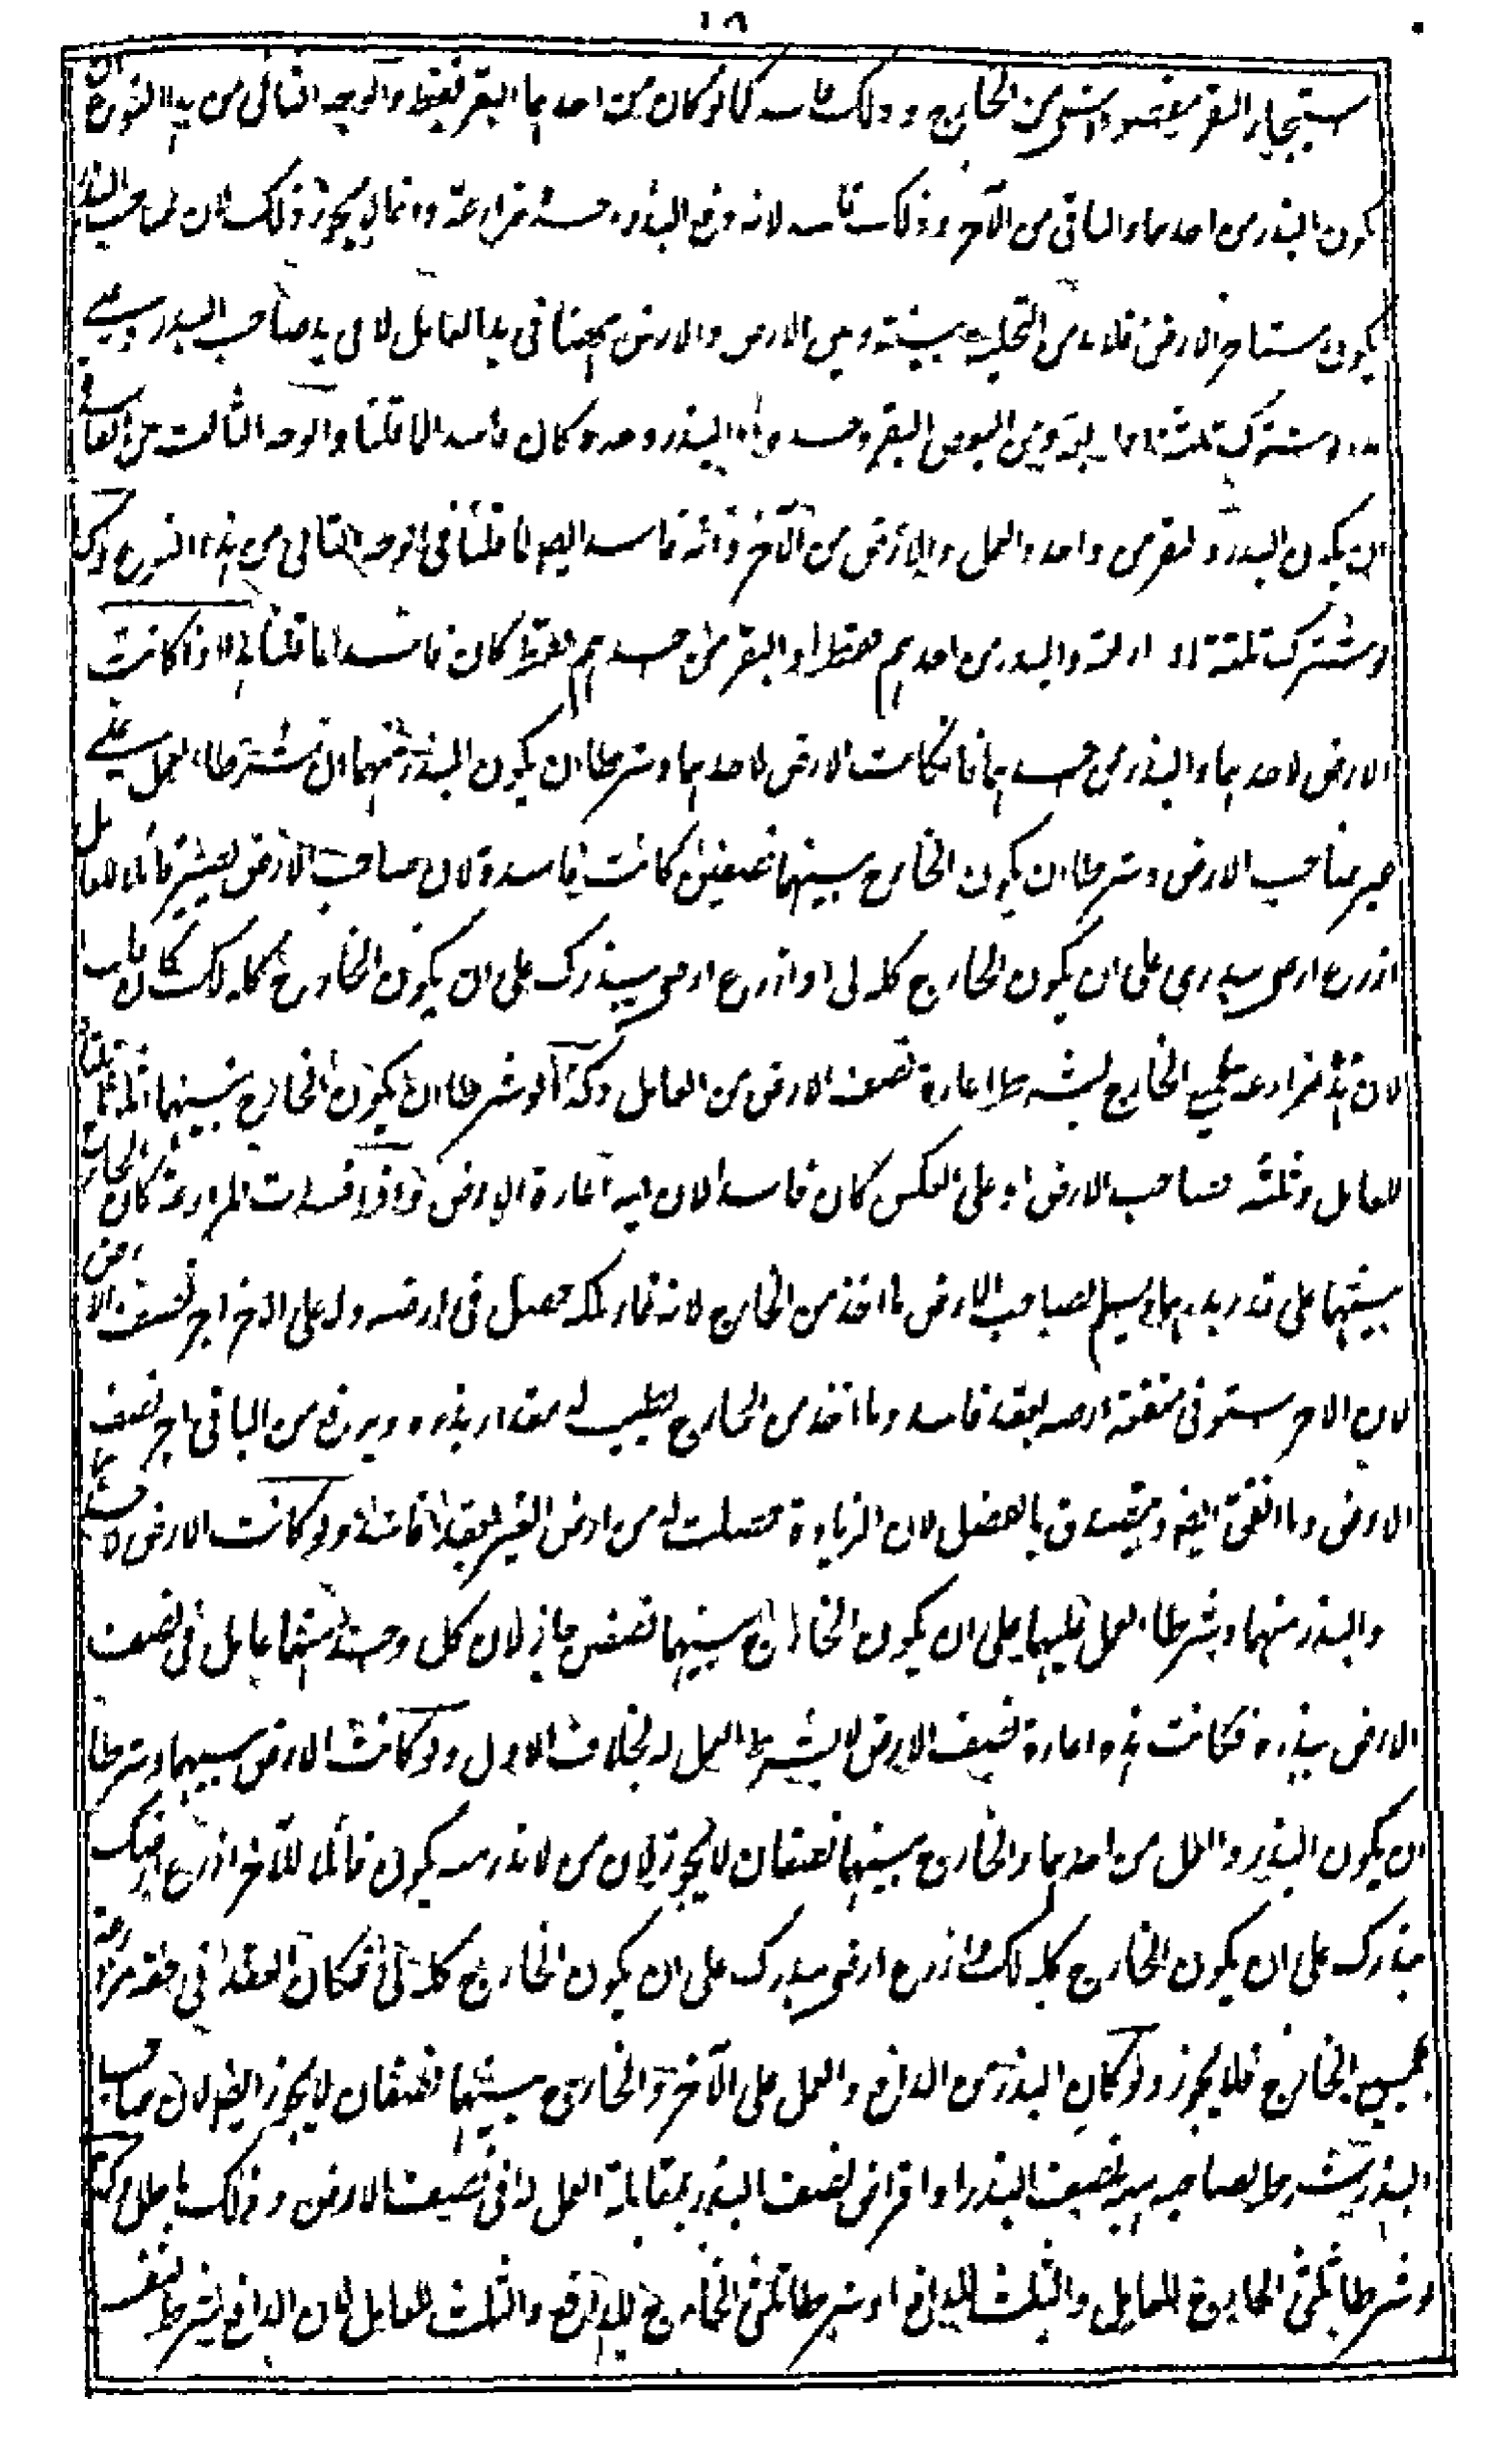 ١٨
استيجار البقر مقصودا بشئ من الخارج وذلك فاسد كما لو كان من احدهما البقر فقط والوجه الثاني من هذا النوع ان
يكون البذر من احدهما والباقي من الآخر وذلك فاسد لانه دفع البذر مزارعة وانما لا يجوز ذلك لان صاحب البذر
يكون مستاجرا لارض فلا بد من التخلية بينه وبين الارض والارض ههنا في يد العامل لا في يد صاحب البذر وعلى
هذا لو اشترك ثلثة او اربعة ومن البعض البقر وحده او البذر وحده كان فاسدا لما قلنا والوجه الثالث من الفاسد
ان يكون البذر والبقر من واحد والعمل والارض من الآخر وانه فاسد ايضا لما قلنا في الوجه الثاني من هذا النوع وكذا
لو اشترك ثلثة او اربعة والبذر من احدهم فقط او البقر من احدهم فقط كان فاسدا لما قلنا هذا اذا كانت
الارض لاحدهما والبذر من احدهما فان كانت الارض لاحدهما وشرطا ان يكون البذر منهما ان شرطا العمل على
غير صاحب الارض وشرطا ان يكون الخارج بينهما نصفين كانت فاسدة لان صاحب الارض يصير قائلا للعامل
ازرع ارضي ببذري على ان يكون الخارج كله لي وازرع ارضي ببذرك على ان يكون الخارج كله لك كان فاسدا
لان هذه مزارعة بجميع الخارج بشرط اعارة نصف الارض من العامل وكذا لو شرطا ان يكون الخارج بينهما اثلاثا ثلثاه
للعامل وثلثه لصاحب الارض او على العكس كان فاسدا لان فيه اعارة الارض واذا فسدت المزارعة كان الخارج
بينهما على قدر بذرهما ويسلم لصاحب الارض ما اخذ من الخارج لانه نماء ملكه حصل في ارضه وله على الآخر اجر نصف الارض
لان الآخر استوفى منفعة ارضه بعقد فاسد وما اخذ من الخارج يطيب له مقدار بذره ويرفع من الباقي اجر نصف
الارض وما انفق ايضا ويتصدق بالفضل لان الزيادة حصلت له من ارض الغير بعقد فاسد ولو كانت الارض لاحدهما
والبذر منهما وشرطا العمل عليهما على ان يكون الخارج بينهما نصفين جاز لان كل واحد منهما عامل في نصف
الارض ببذره فكانت هذه اعارة نصف الارض لا بشرط العمل له بخلاف الاول ولو كانت الارض بينهما وشرطا
ان يكون البذر والعمل من احدهما والخارج بينهما نصفان لا يجوز لان من لا بذر منه يكون قائلا للآخر ازرع ارضك
ببذرك على ان يكون الخارج كله لك وازرع ارضي ببذرك على ان يكون الخارج كله لي فكان العقد في حقه مزارعة
بجميع الخارج فلا يجوز ولو كان البذر من الدافع والعمل على الآخر والخارج بينهما نصفان لا يجوز ايضا لان صاحب
البذر شرط لصاحبه هبة نصف البذر او اقراض نصف البذر بمقابلة العمل له في نصف الارض وذلك باطل وكذا
لو شرطا ثلثي الخارج للعامل والثلث للدافع او شرطا ثلثي الخارج للدافع والثلث للعامل لان الدافع يشرط لنفسه